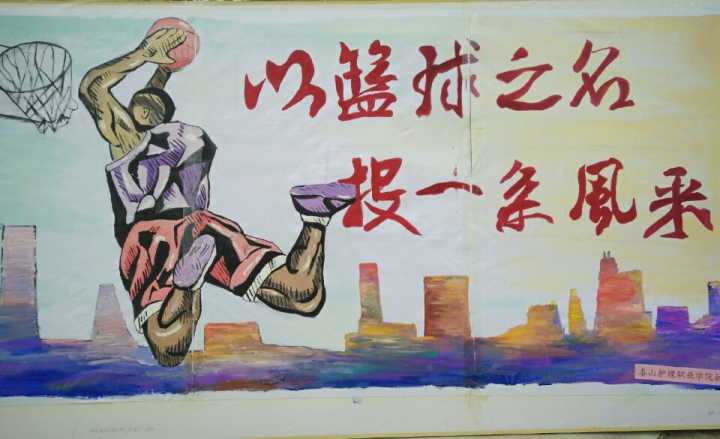 以篮球之名
投一条風采
泰山护理职业学院